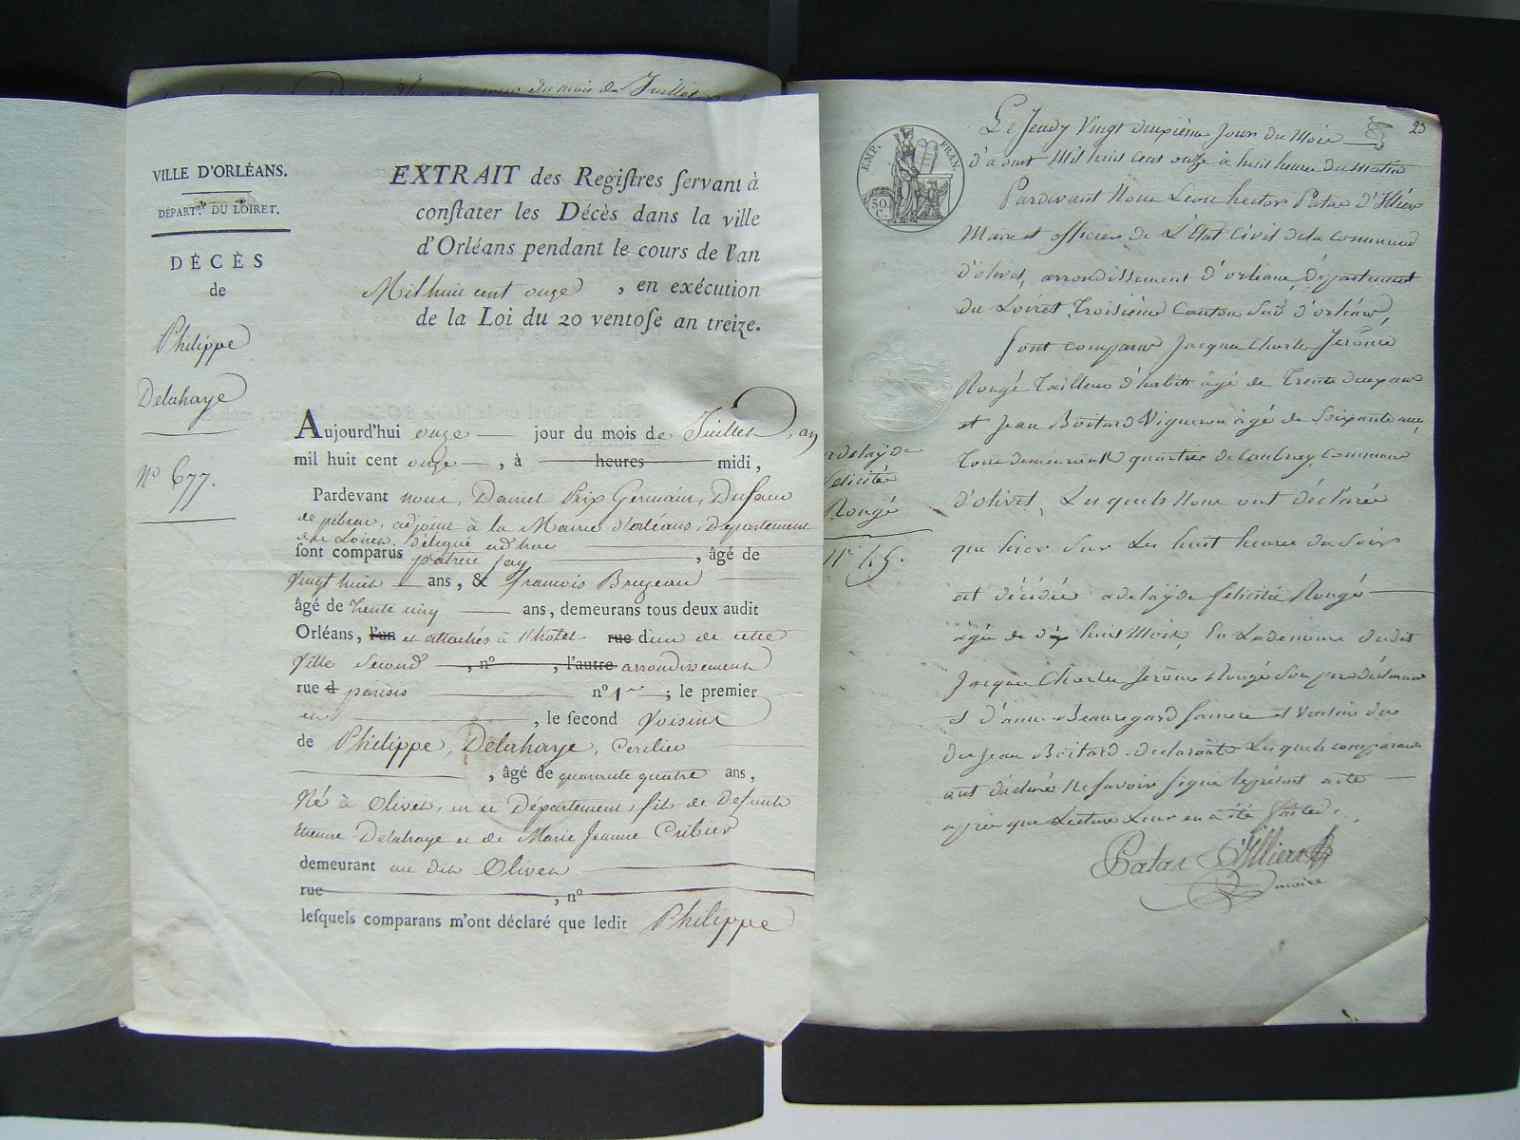 du mois de Juillet
VILLE D'ORLÉANS.
DÉPART.t DU LOIRET.
DÉCÈS
de
Philippe
Delahaye
N° 677.
EXTRAIT des Regiſtres ſervant à
conſtater les Décès dans la ville
d'Orléans pendant le cours de l'an
Mil huit cent onze, en exécution
de la Loi du 20 ventoſe an treize.
Aujourd'hui onze jour du mois de Juillet, an
mil huit cent onze, à heures midi,
Pardevant nous, Daniel Prix Germain, Dufaur
de pibrac, adjoint à la Mairie d'orléans, Département
du Loiret, délégué ad hoc
ſont comparus patrice fay, âgé de
vingt huit ans, & francois Bruzeau
âgé de trente cinq ans, demeurans tous deux audit
Orléans, l'un et attachés à l'hotel rue dieu de cette
Ville Second, n°, l'autre arrondissement
rue d parisis n° 1er; le premier
et, le ſecond Voisins
de Philippe, Delahaye, Cerclier
, âgé de quarante quatre ans,
Né à Olivet, en ce Département, fils de Defunts
Etienne Delahaye et de Marie Jeanne Cribier
demeurant au dit Olivet
rue, n°
leſquels comparans m'ont déclaré que ledit Philippe
25
EMP. FRAN.
50 c.
Le Jeudy Vingt deuxième Jour du Mois
d'aout Mil huit cent onze à huit heures du Matin
Pardevant Nous Léon hector Patas D'Illiers
Maire et officier de L'Etat Civil de la commune
d'olivet, arrondissement d'orléans, Département
du Loiret, Troisième Canton Sud d'orléans,
Sont comparus Jacques Charles Jérôme
Rougé Tailleur d'habits agé de Trente deux ans
et Jean Boitard Vigneron agé de Soixante ans,
Tous demeurant quartier de Caubray, Commune
d'olivet, Lesquels Nous ont déclaré
que hier Sur Les huit heures du Soir
est décédée adelayde félicité Rougé
agée de dix huit Mois, En La demeure dudit
Jacques Charles Jérôme Rougé Son père déclarant
et d'anne Beauregard Sa mere et voisin du
du Jean Boitard déclarants Lesquels comparans
ont déclaré Ne savoir signer le présent acte
après que Lecture Leur en a été faite.
Patas d'Illiers
maire
adelayde
félicité
Rougé
N° 45.